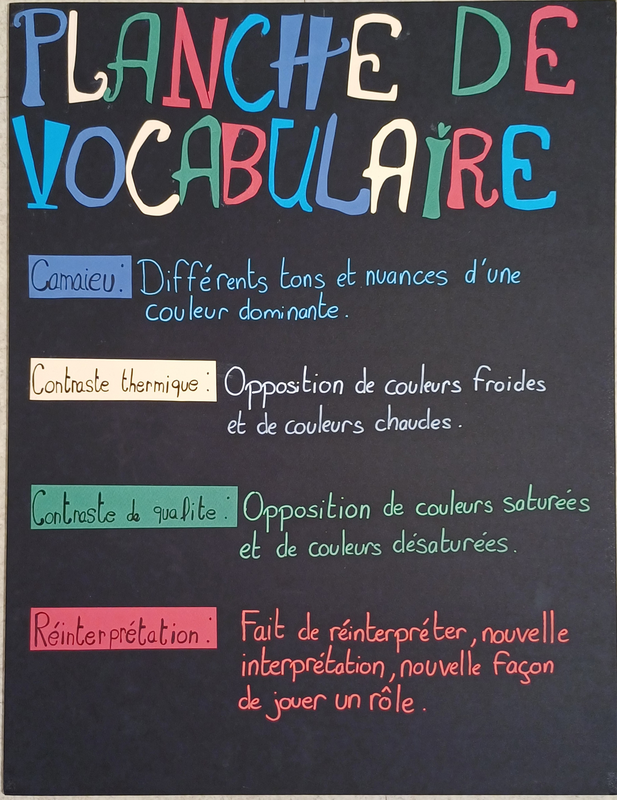 PLANCHE DE
VOCABULAIRE
Camaieu : Différents tons et nuances d'une
couleur dominante.
Contraste thermique : Opposition de couleurs froides
et de couleurs chaudes.
Contraste de qualite : Opposition de couleurs saturées
et de couleurs désaturées.
Réinterprétation : Fait de réinterpréter, nouvelle
interprétation, nouvelle façon
de jouer un rôle.